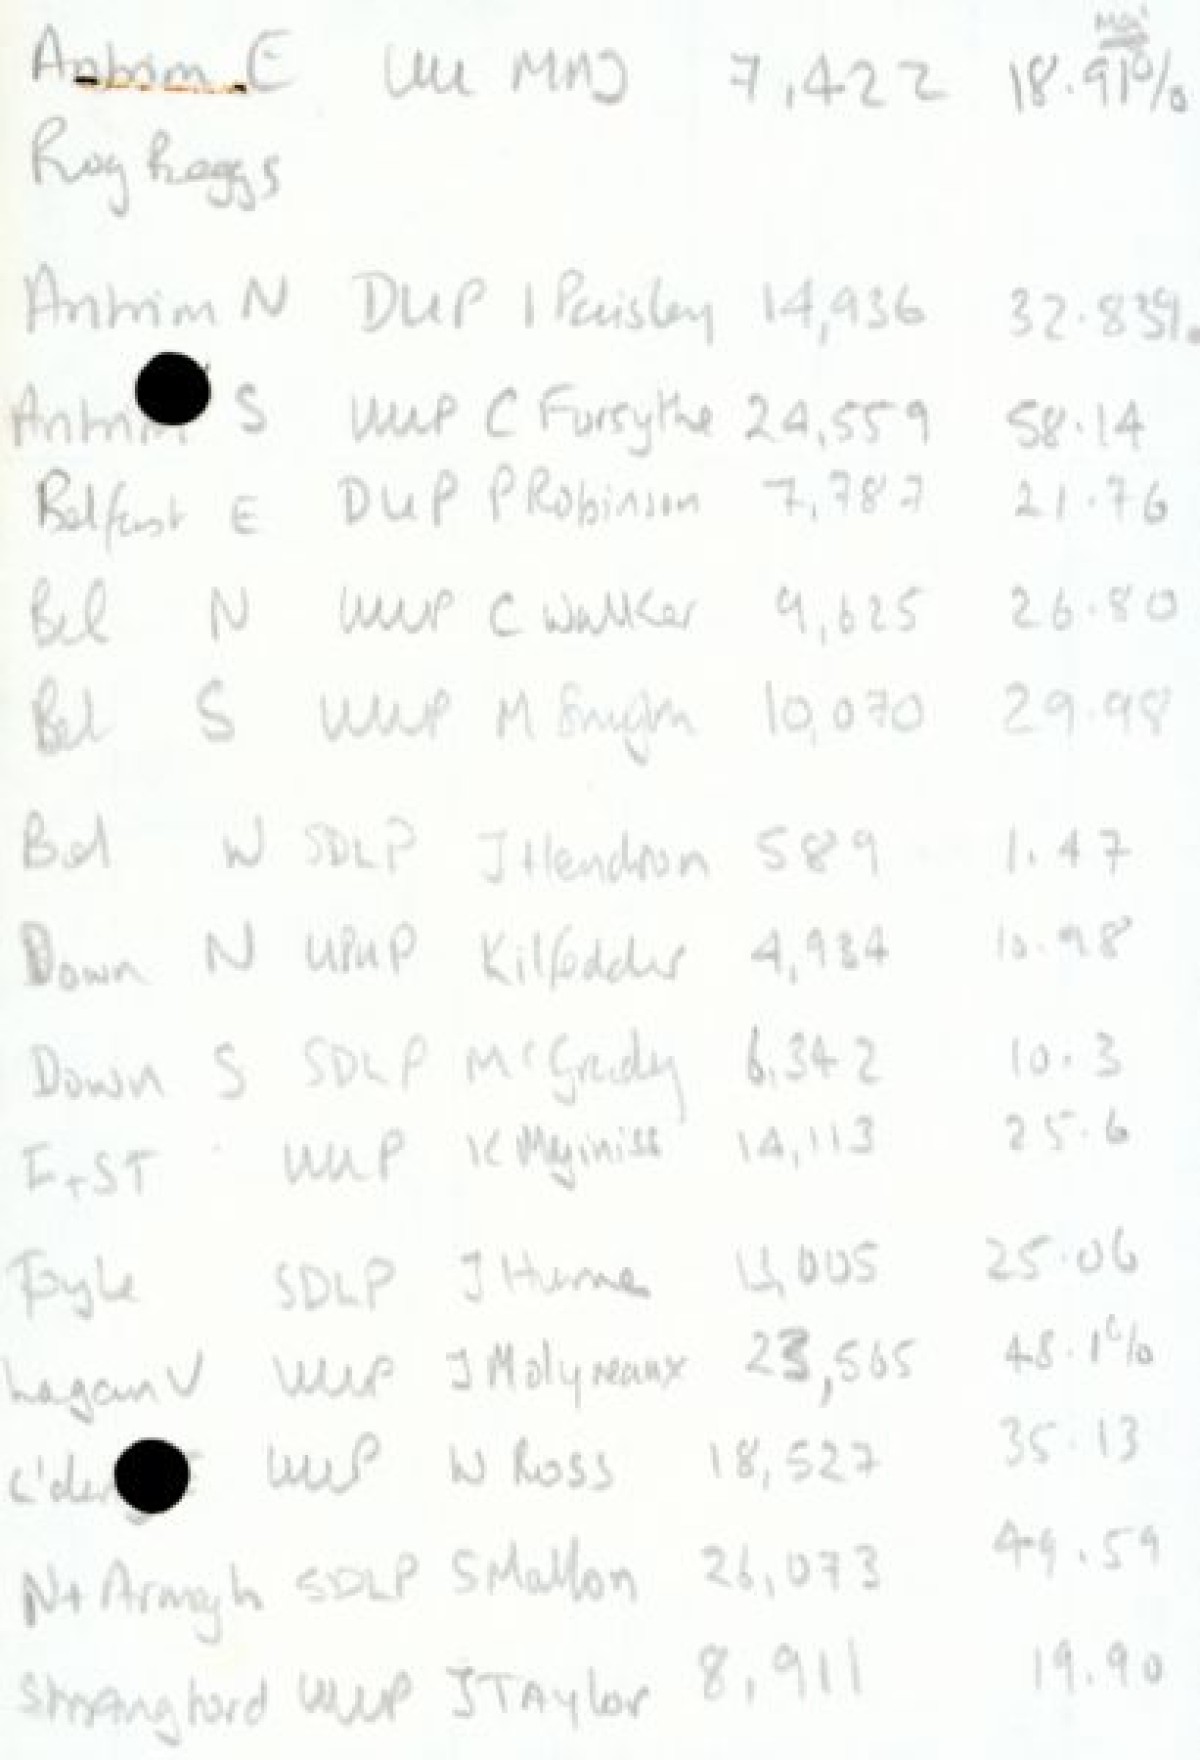 Maj
Antrim E UU MAJ 7,422 18.91%
Roy Beggs
Antrim N DUP I Paisley 14,936 32.83%
Antrim S UUP C Forsythe 24,559 58.14
Belfast E DUP P Robinson 7,787 21.76
Bel N UUP C Walker 9,625 26.80
Bel S UUP M Smyth 10,070 29.98
Bel W SDLP J Hendron 589 1.47
Down N UPUP Kilfedder 4,934 10.98
Down S SDLP McGrady 6,342 10.3
F+ST UUP K Maginiss 14,113 25.6
Foyle SDLP J Hume 13,005 25.06
Lagan V UUP J Molyneaux 23,565 48.1%
L'der UUP W Ross 18,527 35.13
N+Armagh SDLP S Mallon 26,073 49.59
Strangford UUP J Taylor 8,911 19.90